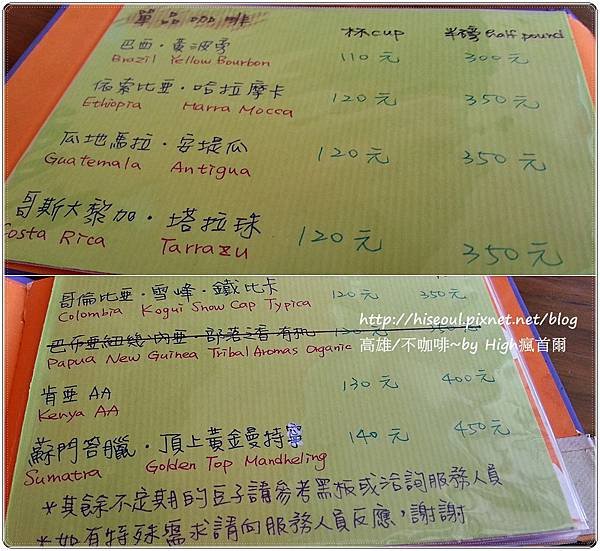 單品咖啡 杯cup 半磅Half pound
巴西·黃波旁 110元 300元
Brazil Yellow Bourbon
依索比亞·哈拉摩卡 120元 350元
Ethiopia Harra Mocca
瓜地馬拉·安堤瓜 120元 350元
Guatemala Antigua
哥斯大黎加·塔拉珠 120元 350元
Costa Rica Tarrazu
哥倫比亞·雪峰·鐵比卡 120元 350元
Colombia Kogui Snow Cap Typica
http://hiseoul.pixnet.net/blog
巴布亞紐幾內亞·部落之香有機 120元
Papua New Guinea Tribal Aromas Organic
高雄/不咖啡~by High瘋首爾
肯亞AA 130元 400元
Kenya AA
蘇門答臘·頂上黃金曼特寧 140元 450元
Sumatra Golden Top Mandheling
*其餘不定期的豆子請參考黑板或洽詢服務人員
*如有特殊需求請向服務人員反應,謝謝